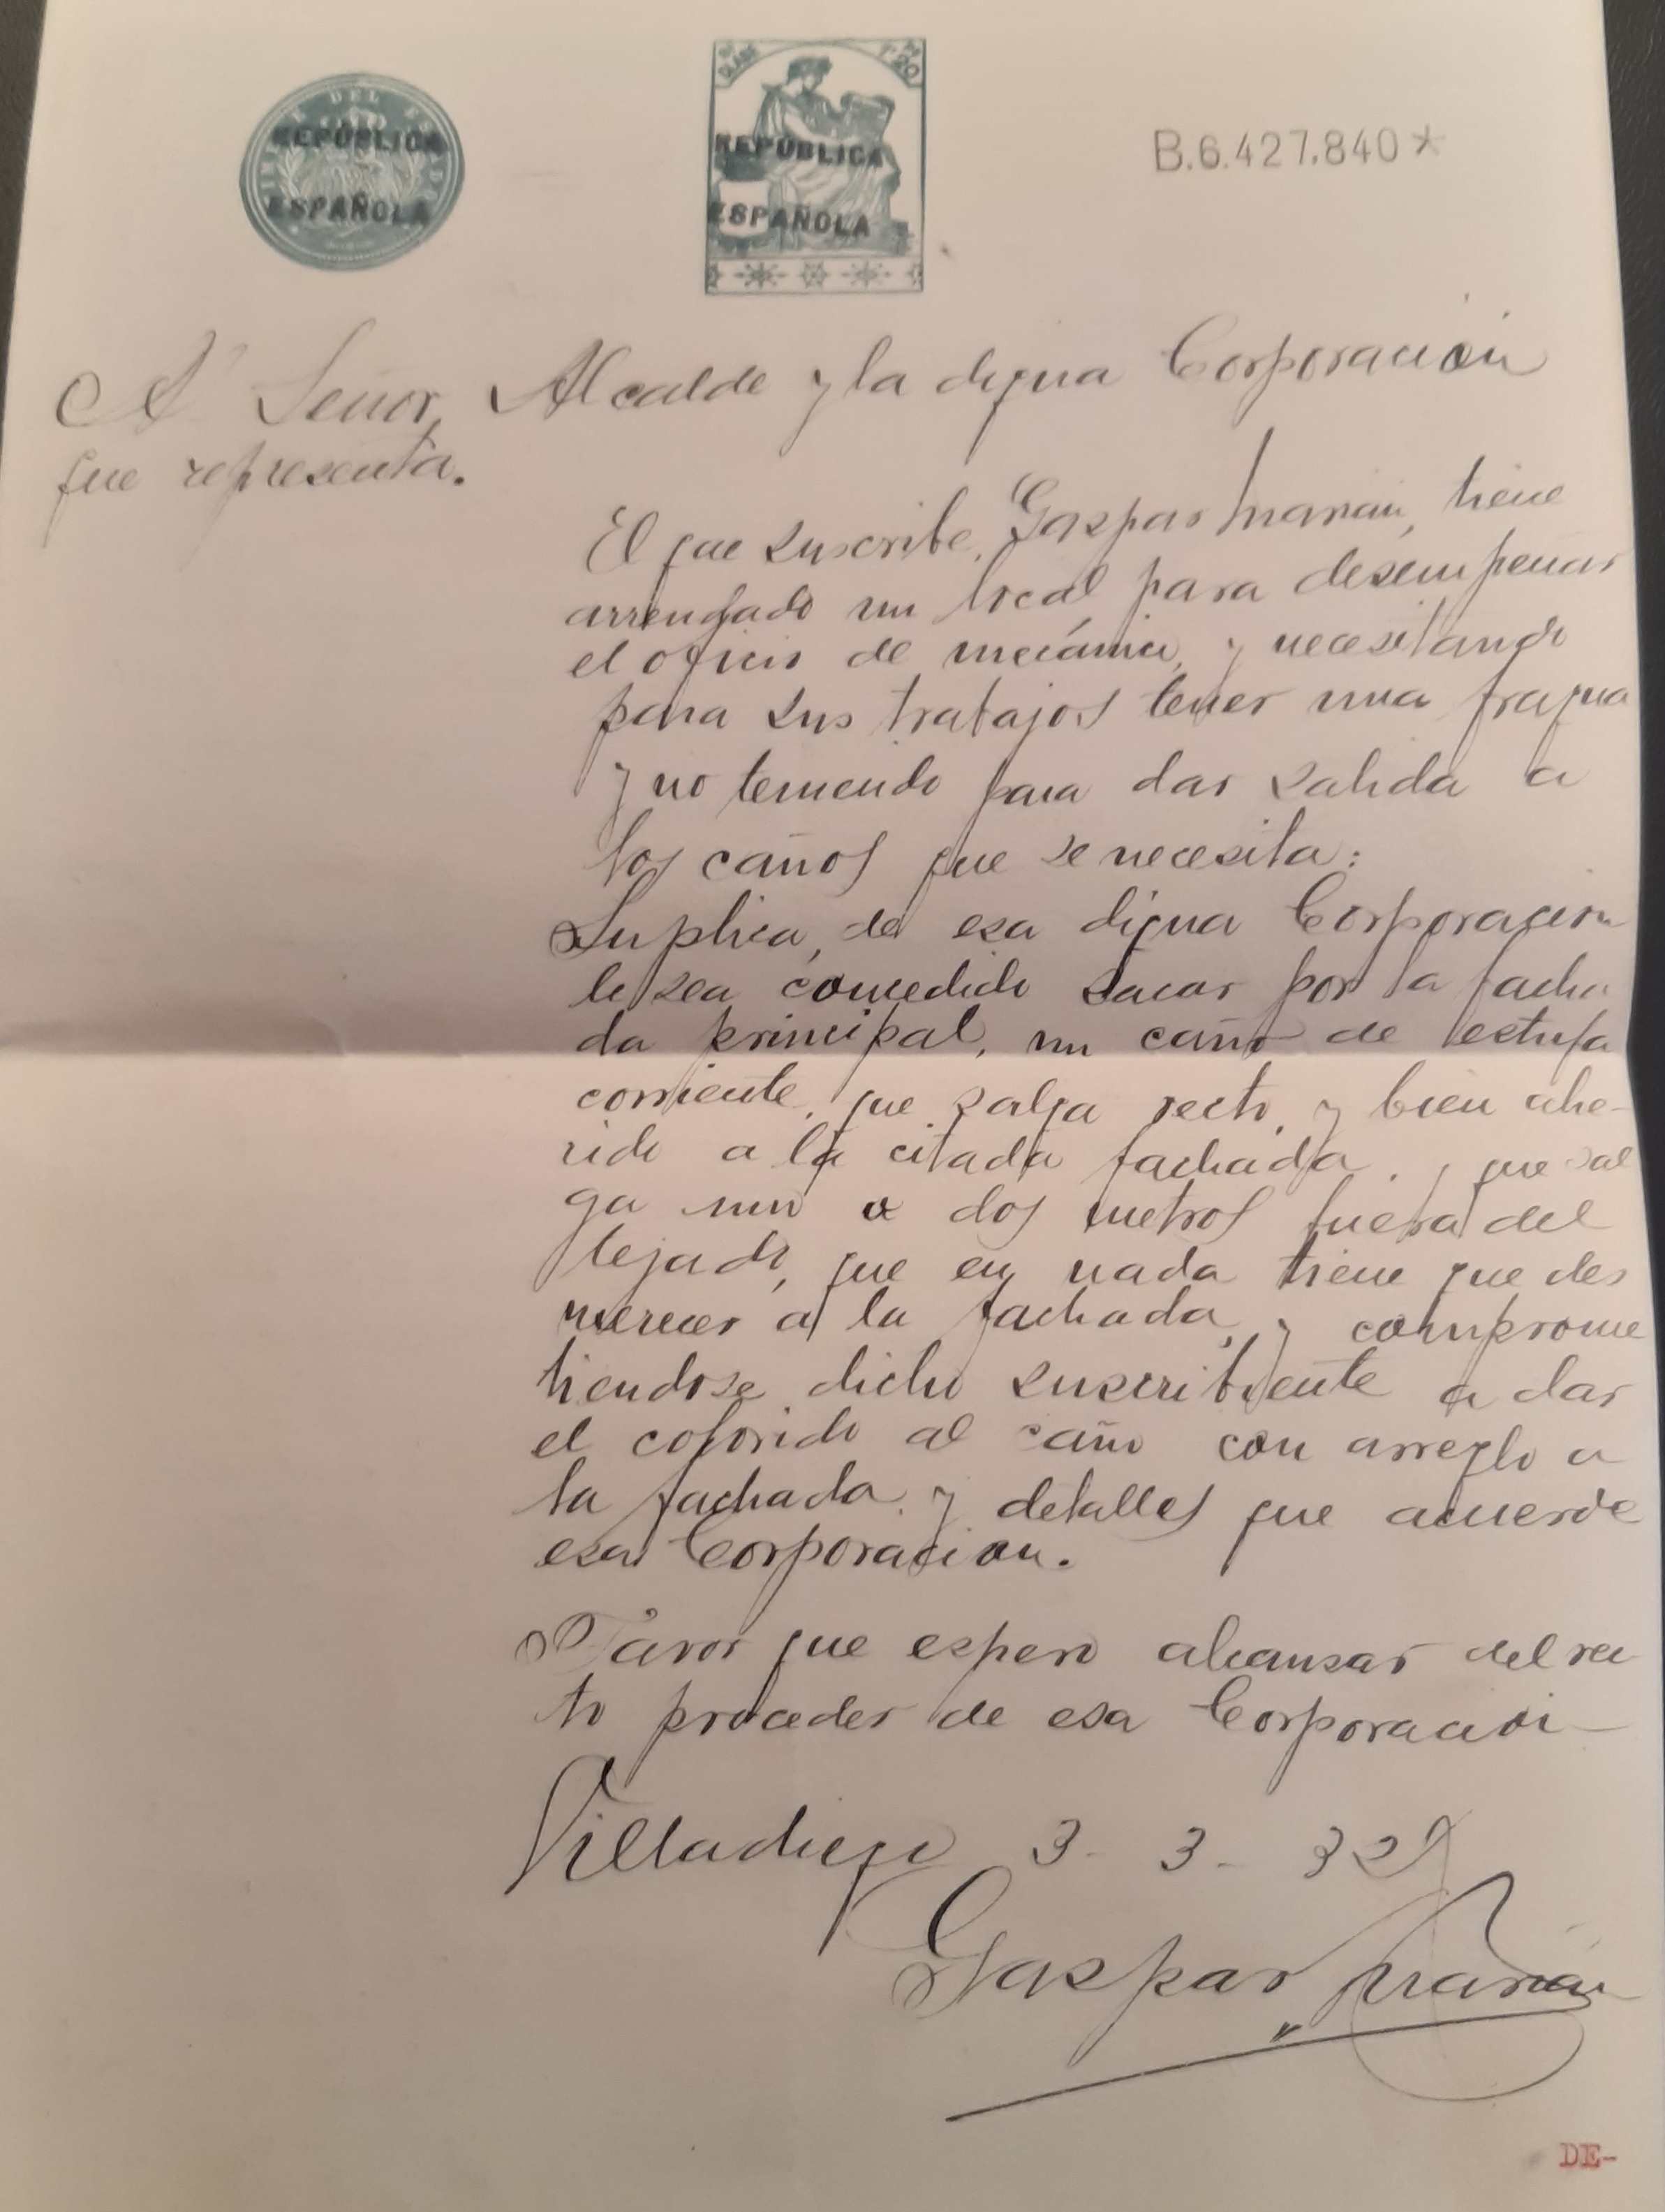 TIMBRE DEL ESTADO
REPÚBLICA
ESPAÑOLA
8ª CLASE 1 P 20
REPÚBLICA
ESPAÑOLA
B.6.427.840*
Al Señor, Alcalde y la digna Corporación
que representa.
El que suscribe, Gaspar Marian, tiene
arrengado un local para desempeñar
el oficio de mecánico, y necesitando
para sus trabajos tener una fragua
y no teniendo para dar salida a
los caños que se necesita:
Suplica, de esa digna Corporacion
le sea concedido sacar por la facha
da principal, un caño de estufa
corriente, que salga recto, y bien ahe-
rido a la citada fachada, y que sal
ga uno o dos metros fuera del
tejado, que en nada tiene que des
merecer a la fachada, y comprome
tiendose dicho suscribiente a dar
el colorido al caño con arreglo a
la fachada y detalles que acuerde
esa Corporacion.
Favor que espero alcansar del rec
to proceder de esa Corporación
Villadiego 3-3-32
Gaspar Marian
DE-